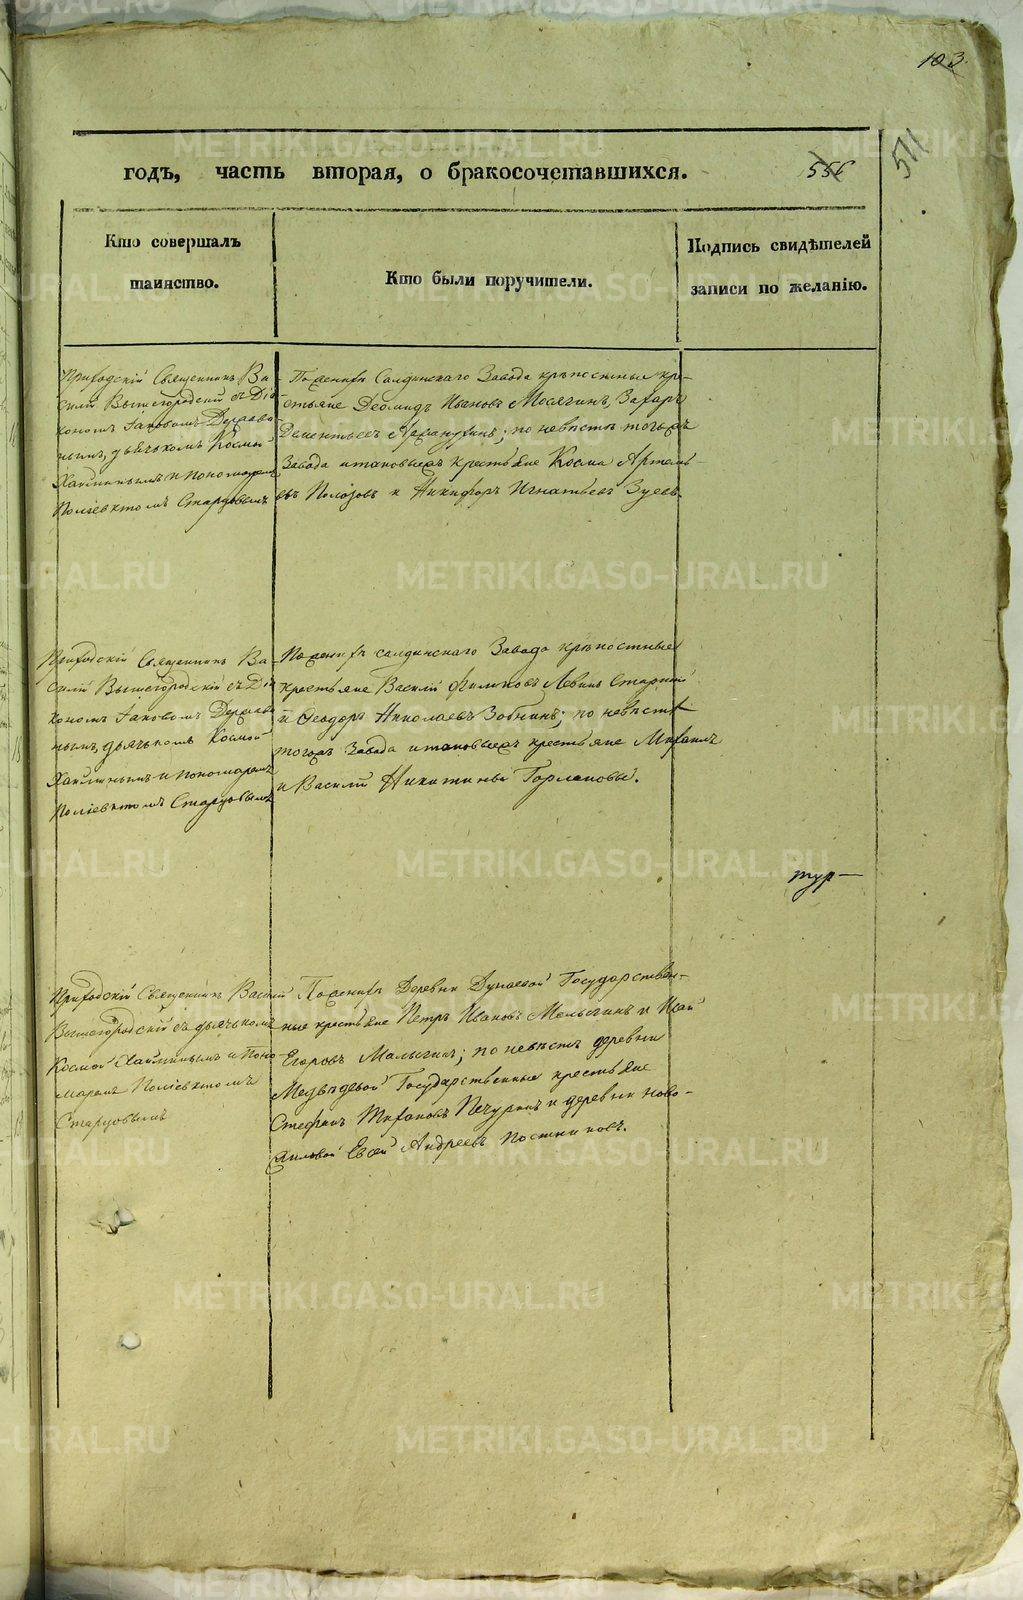 103.
571
годъ, часть вторая, о бракосочетавшихся.
556
Кто совершалъ
таинство.
Кто были поручители.
Подпись свидѣтелей
записи по желанію.
Приходскій Священникъ Ва-
силій Вышегородскій съ Діа-
кономъ Іаковомъ
нымъ, дьячкомъ Космой
и пономаремъ
Поліевктомъ Старцовымъ
По женихѣ Салдинскаго Завода крѣпостные кре-
стьяне Деомидъ Ивановъ Захаръ
Дементьевъ по невѣстѣ тогожъ
Завода и таковыежъ крестьяне Косма Артемь-
евъ Полозовъ и Никифоръ Игнатьевъ Зуевъ.
Приходскій Священникъ Ва-
силій Вышегородскій съ Діа-
кономъ Іаковомъ
нымъ, дьячкомъ Космой
и пономаремъ
Поліевктомъ Старцовымъ
По женихѣ салдинскаго Завода крѣпостные
крестьяне Василій Филиповъ Левинъ Старшій
и Ѳеодоръ Николаевъ Зобнинъ; по невѣстѣ
тогожъ Завода и таковыежъ крестьяне Михаилъ
и Василій Никитины Горлановы.
тур
Приходскій Священникъ Василій
Вышегородскій съ дьячкомъ
Космой и Поно-
маремъ Поліевктомъ
Старцовымъ
По женихѣ Деревни Дунаевой Государствен-
ные крестьяне Петръ Ивановъ Малыгинъ и
Егоровъ Малыгинъ; по невѣстѣ деревни
Медвѣдевой Государственные крестьяне
Стефанъ Печуринъ и деревни Ново-
жиловой Евсей Андреевъ Постниковъ.
METRIKI.GASO-URAL.RU